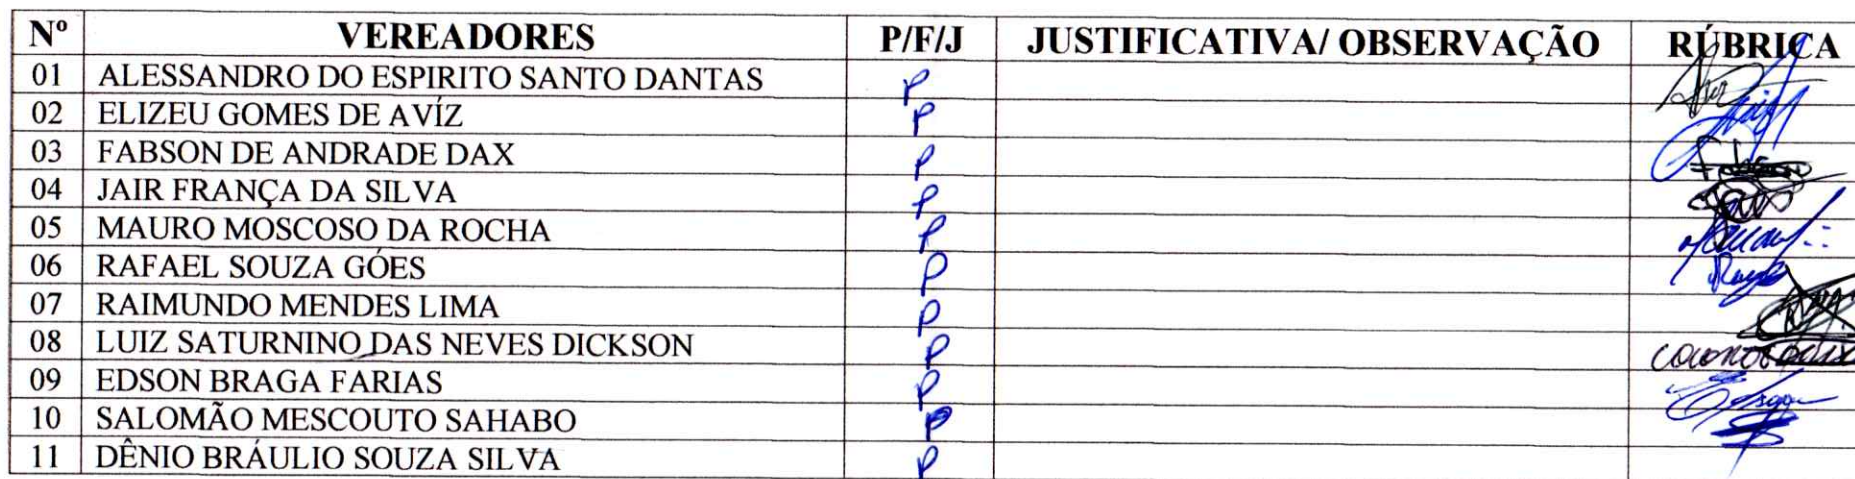 Nº VEREADORES P/F/J JUSTIFICATIVA/ OBSERVAÇÃO RÚBRICA
01 ALESSANDRO DO ESPIRITO SANTO DANTAS P
02 ELIZEU GOMES DE AVÍZ P
03 FABSON DE ANDRADE DAX P
04 JAIR FRANÇA DA SILVA P
05 MAURO MOSCOSO DA ROCHA P
06 RAFAEL SOUZA GÓES P
07 RAIMUNDO MENDES LIMA P
08 LUIZ SATURNINO DAS NEVES DICKSON P
09 EDSON BRAGA FARIAS P
10 SALOMÃO MESCOUTO SAHABO P
11 DÊNIO BRÁULIO SOUZA SILVA P